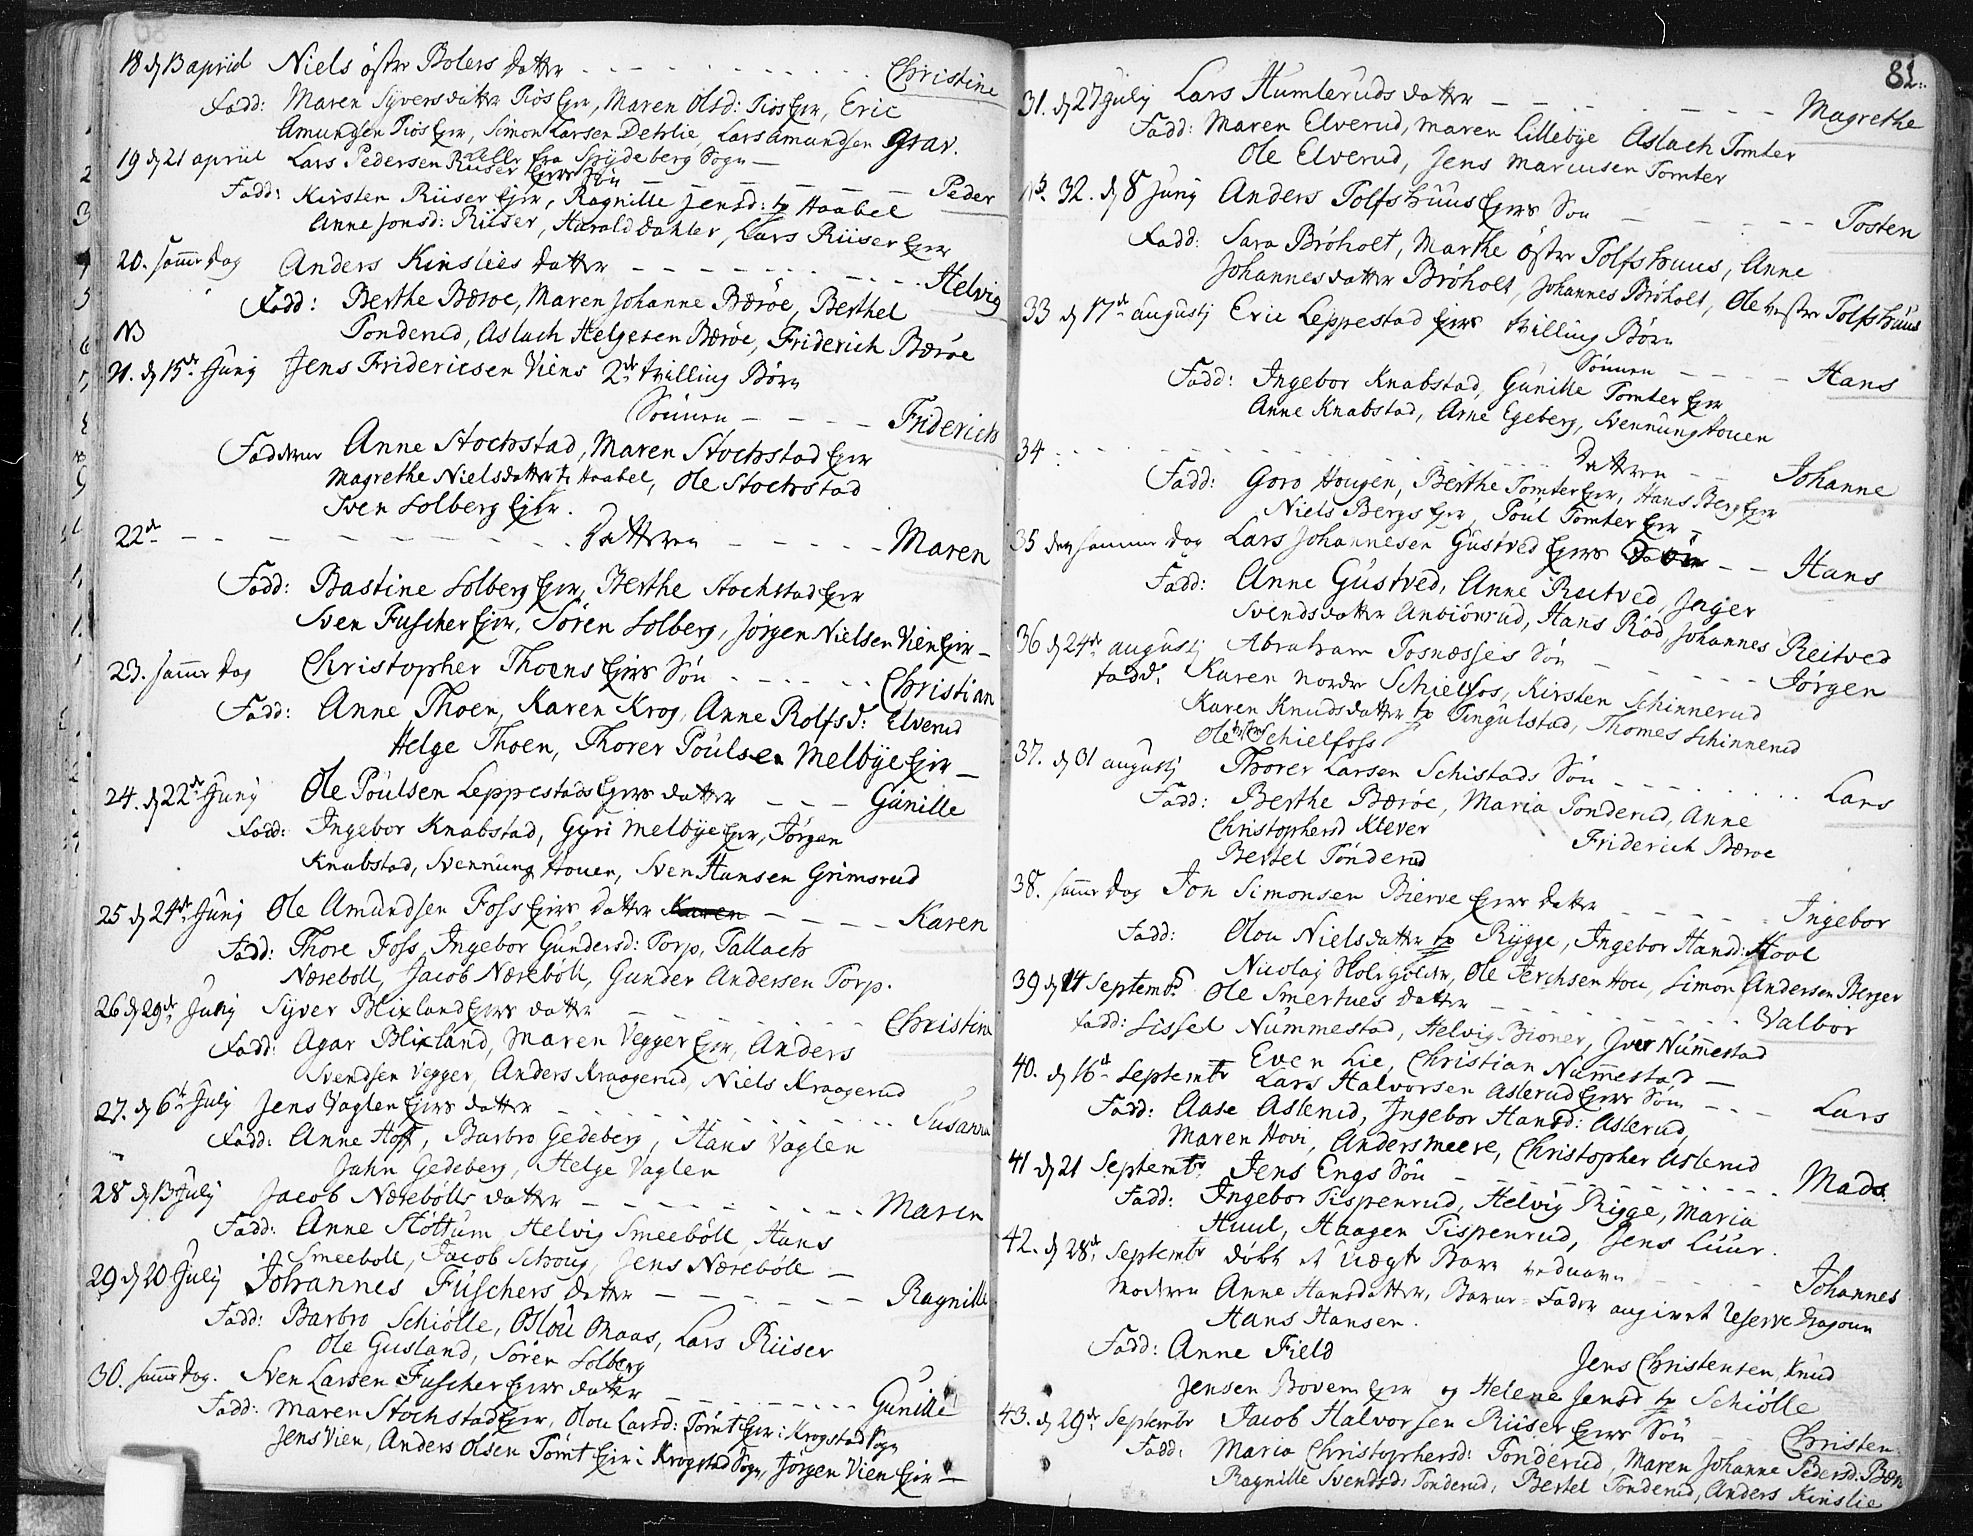 18 d 13 april Niels öster Bolers datter - - - Christine
Fadd: Maren Syversdatter Tiøs Ejer, Maren Olsd: Tiøs Ejer, Eric
Amundsen Tiøs Ejer, Simon Larsen Dehlie, Lars Amundsen Grav.
19 d 21 april Lars Pedersen Riiser eller fra Spydeberg Sogn -
Ejers Søn - - - Peder
Fadd: Kirsten Riiser Ejer, Ragnille Jensd: tp Haabel
Anne Jonsd: Riiser, Harald Dahler, Lars Riiser Ejer
20. samme dag Anders Kinslies datter - - - Helvig
Fadd: Berthe Bærøe, Maren Johanne Bærøe, Berthel
NB Tonderud, Aslach Helgesen Bærøe, Friderich Bærøe
21. d 15de Junj Jens Fridericsen Viens 2de tvilling Børn
Sönnen - - - Friderich
Fadderne Anne Stochstad, Maren Stochstad Ejer
Magrethe Nielsdatter tp Haabel, Ole Stochstad
Sven Solberg Ejer.
22de - - - Datteren - - - Maren
Fadd: Bastine Solberg Ejer, Berthe Stochstad Ejer
Sven Fuscher Ejer, Sören Solberg, Jörgen Nielsen Vien Ejer -
23. samme dag Christopher Thoens Ejers Søn - - - Christian
Fadd: Anne Thoen, Karen Krog, Anne Rolfsd: Elverud
Helge Thoen, Thorer Poulsen Melbye Ejer -
24. d 22de Junj Ole Poulsen Leppestads Ejers datter - - - Gunille
Fadd: Ingebor Knabstad, Gyri Melbye Ejer, Jørgen
Knabstad, Svennung Houen, Sven Hansen Grimsrud
25 d 24de Junj Ole Amundsen Foss Ejers datter Karen - - - Karen
Fadd: Thore Foss, Ingebor Gundersd: Torp, Tallach
Næreboll, Jacob Næreböll, Gunder Andersen Torp.
26 d 29de Junj Syver Blixland Ejers datter - - - Christine
Fadd: Agar Blixland, Maren Vegger Ejer, Anders
Svendsen Vegger, Anders Kraagerud, Niels Kraagerud
27. d 6te July Jens Vaglen Ejers datter - - - Susanna
Fadd: Anne Hoff, Barbro Gedeberg, Hans Vaglen
Jahn Gedeberg, Helge Vaglen
28 d 13 July Jacob Nærebölls datter - - - Maren
Fadd: Anne Stöttum, Helvig Smeeböll, Hans
Smeeboll, Jacob Schoug, Jens Næreböle -
29 d 20 July Johannes Füschers datter - - - Ragnille
Fadd: Barbro Schiölle, Oslou Maas, Lars Riiser
Ole Gusland, Sören Solberg
30. samme dag. Sven Larsen Fuscher Ejers datter - - - Gunille
Fadd: Maren Stochstad Ejer, Olou Larsd: Tömt Ejer i Krogstad Sogn
Jens Vien, Anders Olsen Tömt Ejer i Krogstad Sogn, Jørgen Vien Ejer -
81.
31. d 27 July Lars Humleruds datter - - - Magrethe
Fadd: Maren Elverud, Maren Lillebye Aslach Tomter
Ole Elverud, Jens Marcusen Tomter
NB. 32. d 8 Junj Anders Tolfshuus Ejers Søn - - - Tosten
Fadd: Sara Bröholt, Marthe öster Tolfshuus, Anne
Johannesdatter Bröholt, Johannes Bröholt, Ole vester Tolfshuus
33 d 17de augustj Eric Leppestad Ejers tvilling Børn
Sönnen - - - Hans
Fadd: Ingebor Knabstad, Gunille Tomter Ejer
Anne Knabstad, Arne Egeberg, Svennung Houen
34 - - - Datteren - - Johanne
Fadd: Goro Hougen, Berthe Tomter Ejer, Hans Berg Ejer
Niels Bergs Ejer, Poul Tomter Ejer -
35 den samme dag Lars Johannesen Gustved Ejers Søn - - Hans
Fadd: Anne Gustved, Anne Reitved, Inger
Svendsdatter Anbiönrud, Hans Röd, Johannes Reitved
36 d 24de augustj Abraham Tosnæsses Søn - - - Jørgen
Fadd: Karen nordre Schielfos, Kirsten Schinnerud
Karen Knudsdatter tp Tingulstad, Thomes Schinnerud
Ole Schielfoss
37. d 31 augustj Thorer Larsen Schistads Søn - - - Lars
Fadd: Berthe Bærøe, Maria Tonderud, Anne
Christophersd Klever Friderich Bærøe
Bertel Tönderud
38. samme dag Jon Simonsen Bierve Ejers datter - - - Ingebor
Fadd: Olou Nielsdatter tp Rygge, Ingebor Hansd: Hovl
Nicolaj Skolegolder, Ole Terchsen Hou, Simon Andersen Berger
39 d 14 Septembr Ole Smertues datter - - - Valbor
Fadd: Sissel Nummestad, Helvig Bioner, Iver Nummestad
Even Lie, Christian Nummestad -
40. d 16de Septembr Lars Halvorsen Aslerud Ejers Søn - - - Lars
Fadd: Aase Aslerud, Ingebor Hansd: Aslerud,
Maren Hovi, Anders Meere, Christopher Aslerud
41 d 21 Septembr Jens Engs Søn - - - Mads.
Fadd: Ingebor Tispenrud, Helvig Rigge, Maria
Huul, Haagen Tispenrud, Jens Luur.
42. d 28de Septembr döbt et Uægte Barn ved navn - - - Johannes
Moderen Anne Hansdatter, Barne-Fader angivet Reserve Dragoun
Hans Hansen.
Fadd: Anne Field Jens Christensen, Knud
Jensen Boven Ejer og Helene Jensd tp Schiölle
43. d 29de Septembr Jacob Halvorsen Riiser Ejers Søn - - Christen
Fadd: Maria Christophersd: Tonderud, Maren Johanne Pedersd. Bærøe
Ragnille Svendsd: Tonderud, Bertel Tonderud, Anders Kinslie